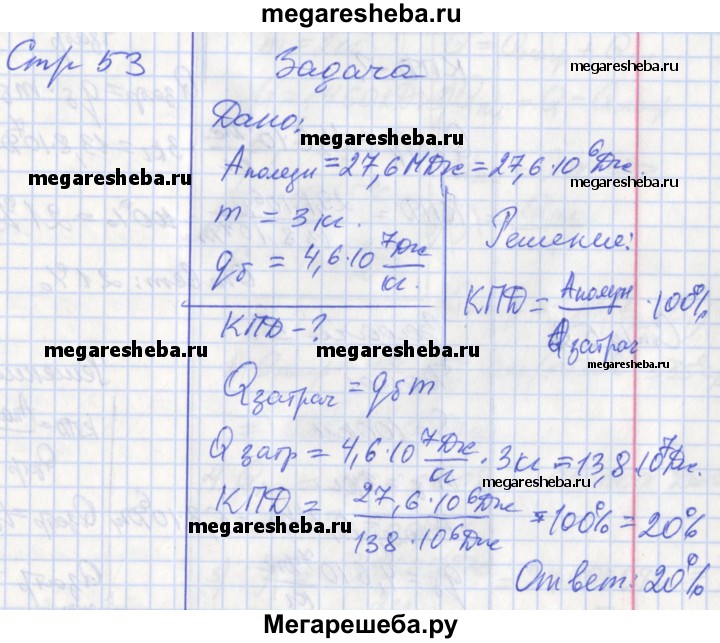 megaresheba.ru
Стр 53 Задача
megaresheba.ru
Дано:
megaresheba.ru
Aполезн = 27,6 МДж = 27,6·10⁶ Дж
megaresheba.ru
megaresheba.ru
m = 3 кг.
Решение:
qб = 4,6·10⁷ Дж/кг.
КПД = Aполезн/Qзатрач · 100%
КПД - ?
megaresheba.ru
megaresheba.ru
Qзатрач = qбm
Qзатр = 4,6·10⁷ Дж/кг · 3 кг = 13,8·10⁷ Дж.
megaresheba.ru
КПД = 27,6·10⁶ Дж/138·10⁶ Дж * 100% = 20%
megaresheba.ru
Ответ: 20%
Мегарешеба.ру